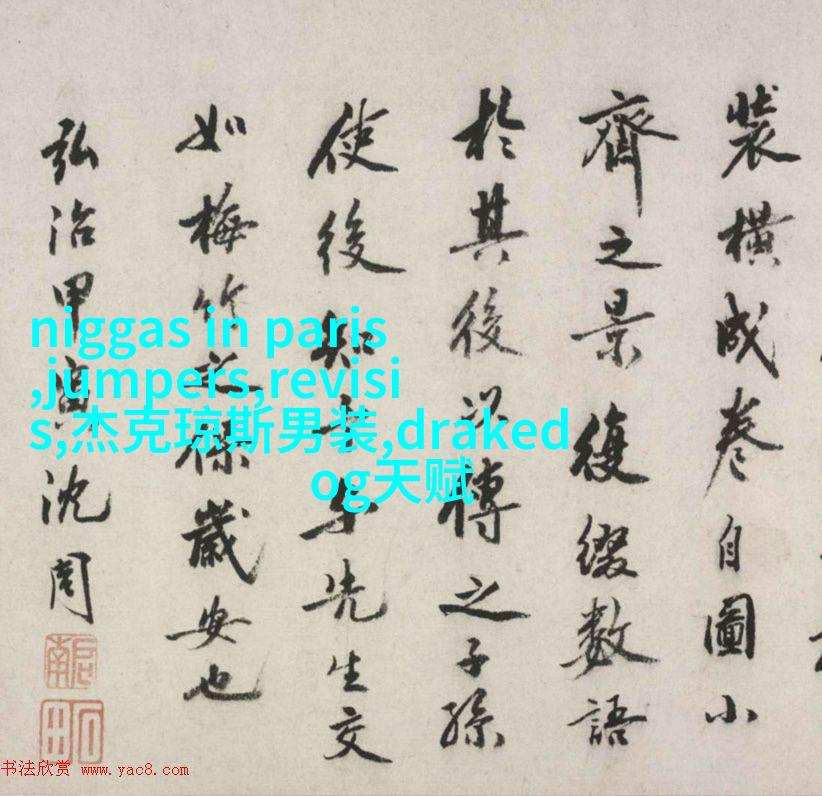 裝橫成卷自圖小
齊之景復綴數語
於其後以傳之子孫
使後知吾与先生交
如梅竹之保歲安也
弘治甲寅沈周
niggas in paris
,jumpers,revisi
s,杰克琼斯男装,draked
og天赋
书法欣赏 www.yac8.com